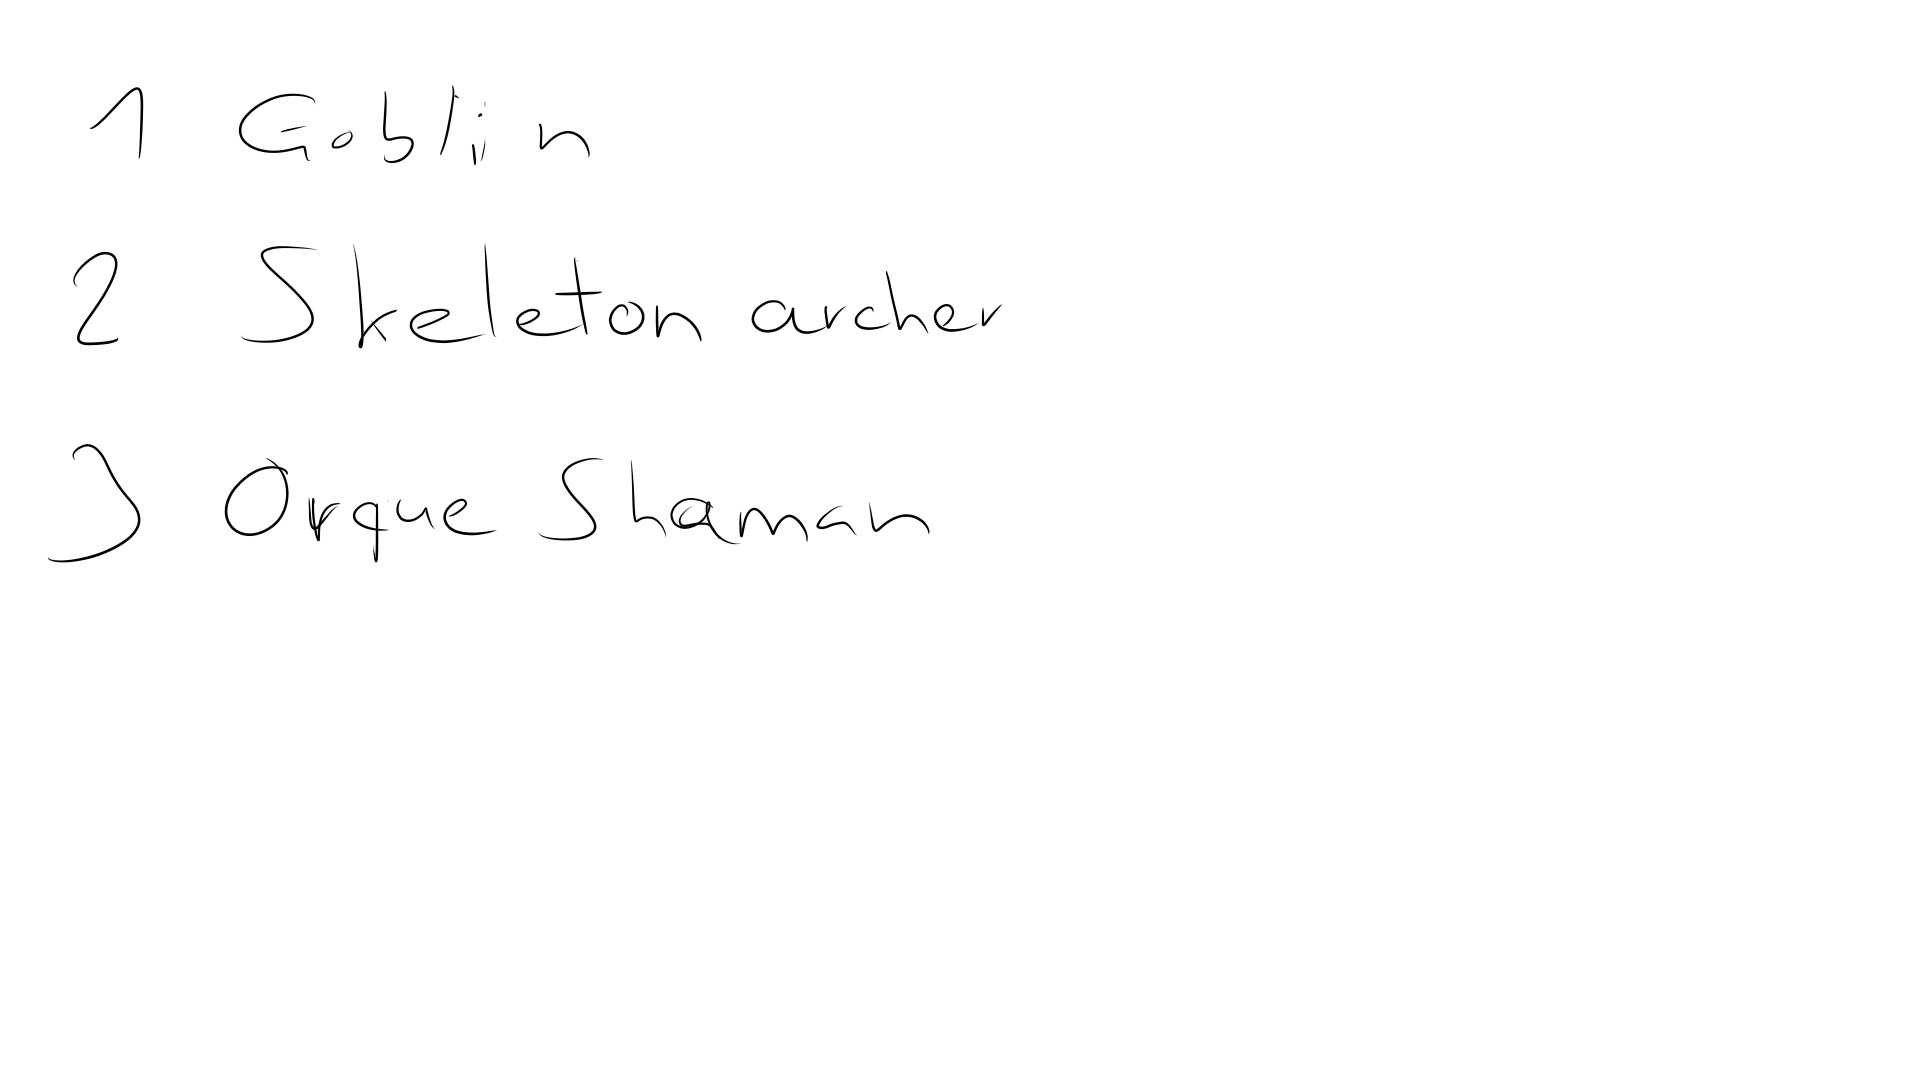 1 Goblin
2 Skeleton archer
3 Orque Shaman